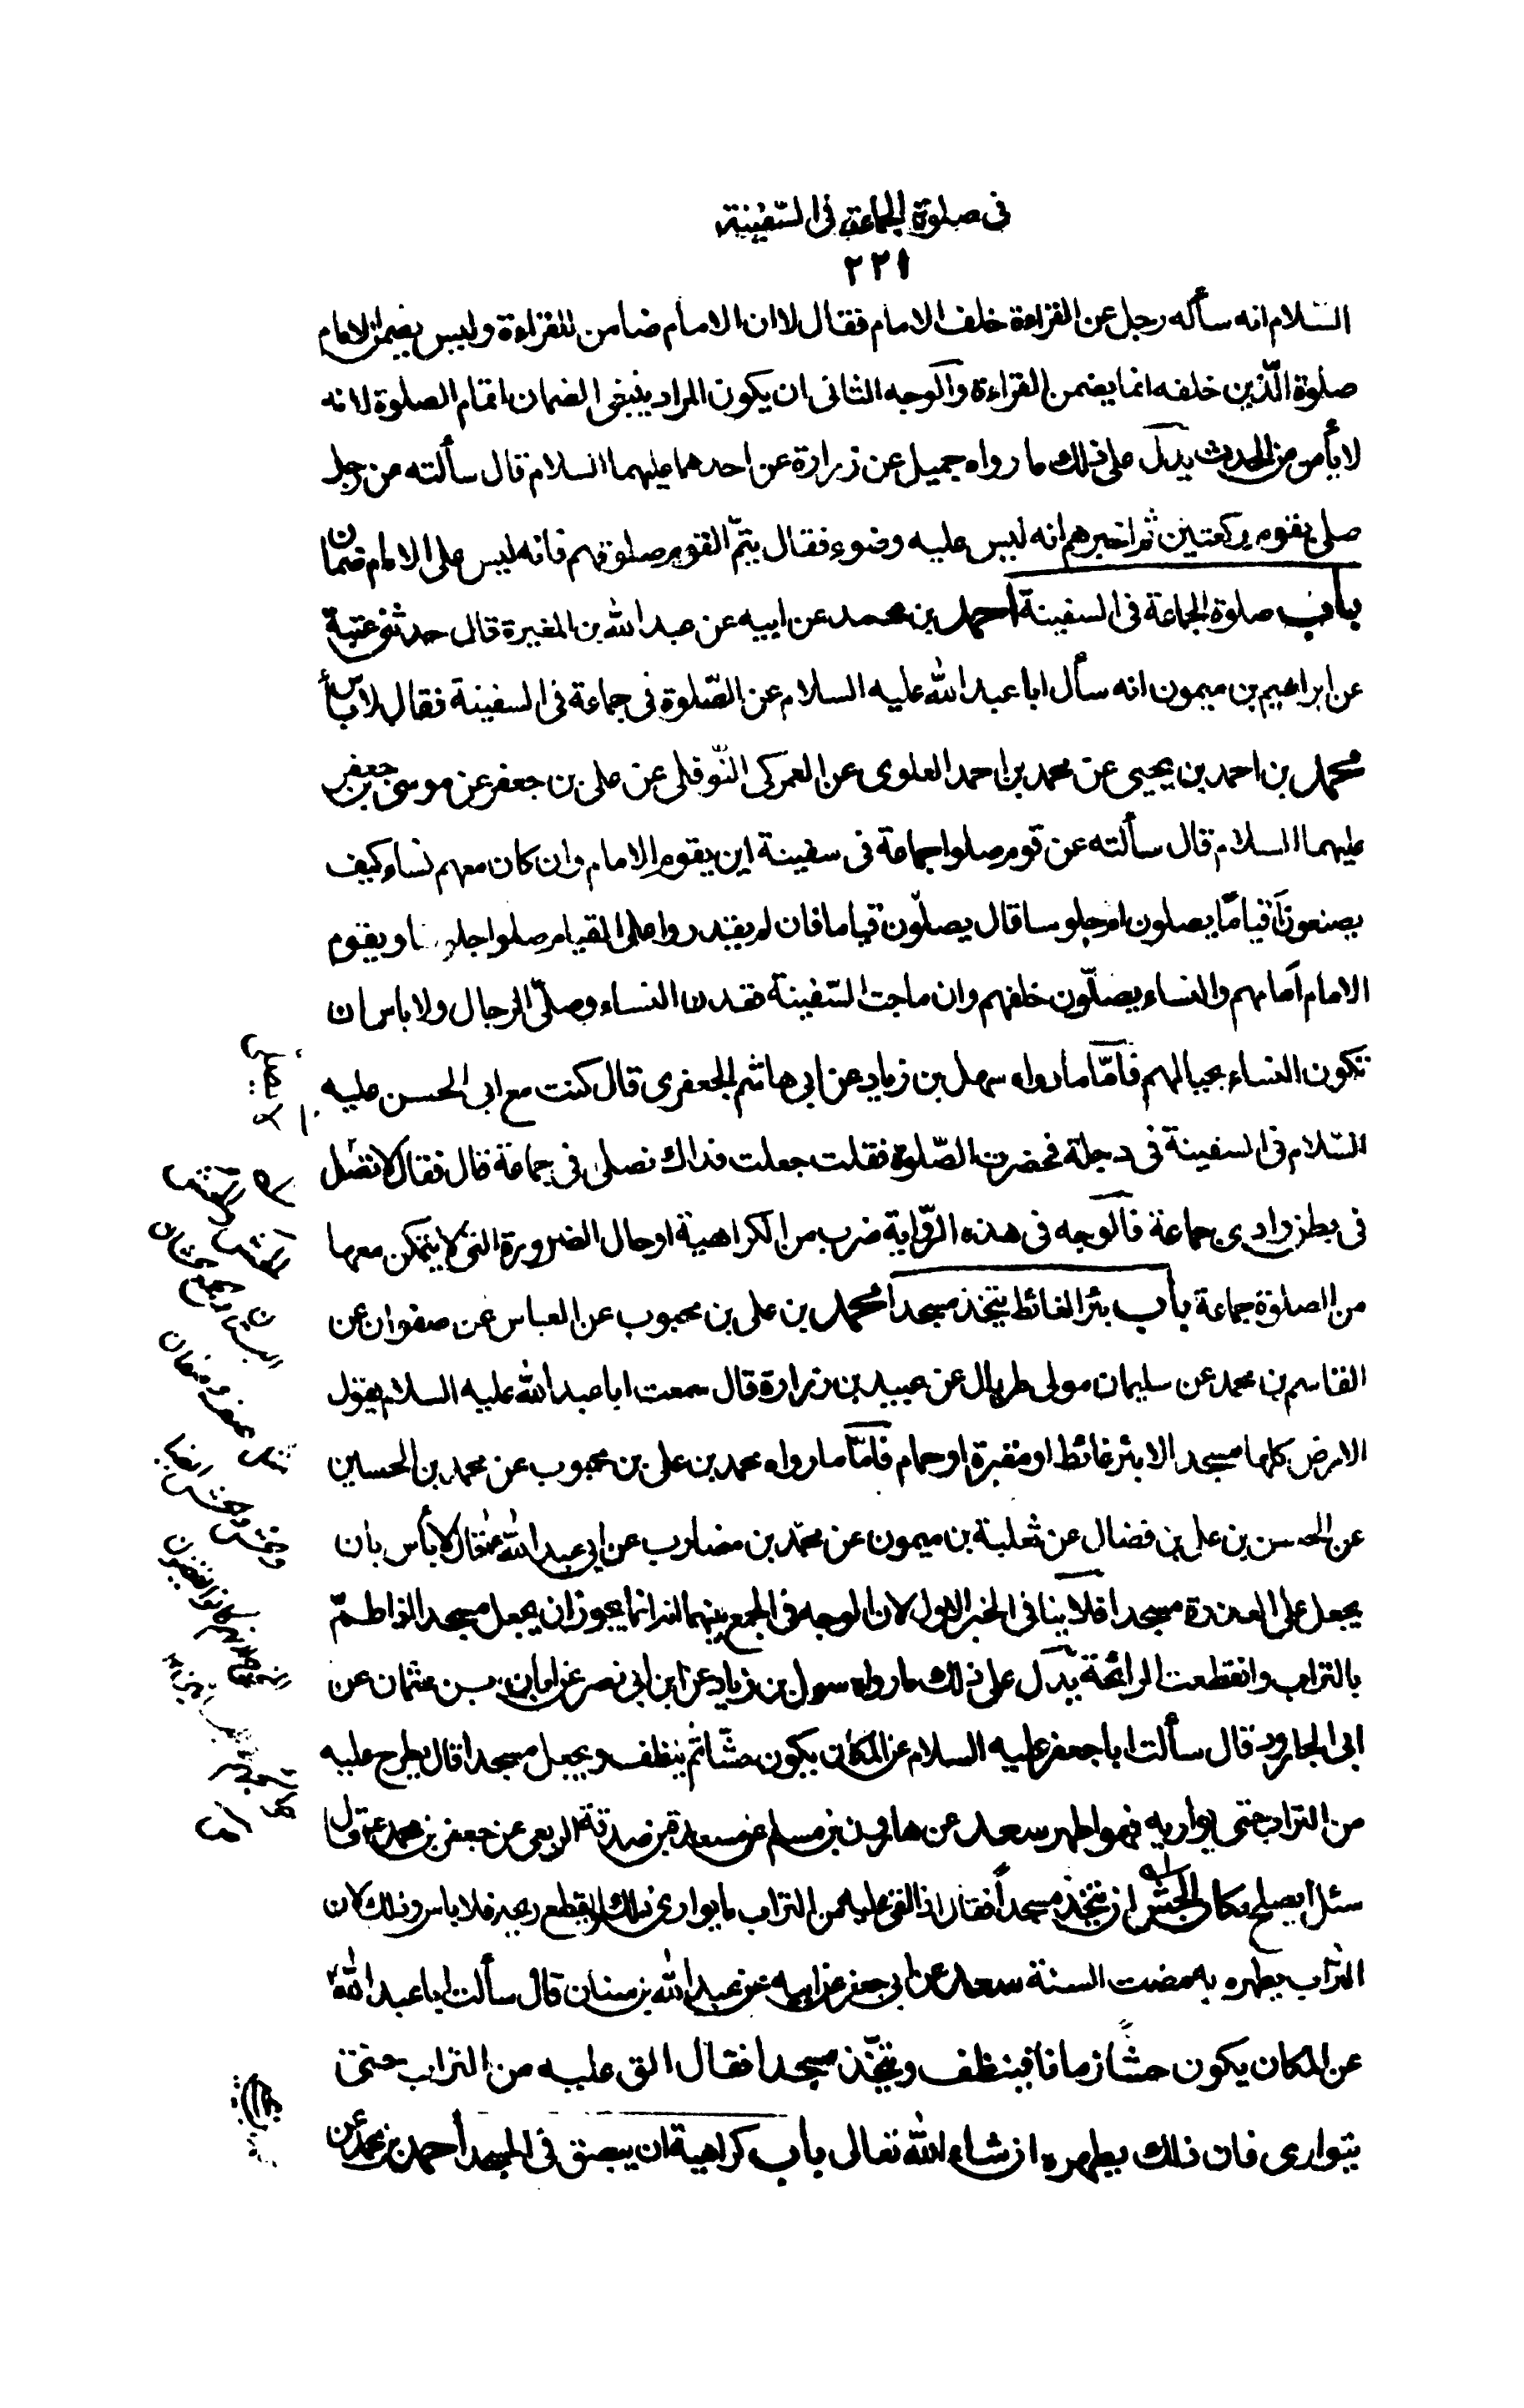 فى صلوة الجماعة فى السّفينة
٢٢١
السّلام انه سأله رجل عن القراءة خلف الامام فقال لا ان الامام ضامن للقراءة وليس يضمن الامام
صلوة الّذين خلفه انما يضمن القراءة والوجه الثانى ان يكون المراد بنفى الضمان اتمام الصلوة لانه
لا يأمن من الحدث يدلّ على ذلك ما رواه جميل عن زرارة عن احدهما عليهما السلام قال سألته عن رجل
صلى بقوم ركعتين ثم اخبرهم انه ليس عليه وضوء فقال يتمّ القوم صلوتهم فانه ليس على الامام ضمان
باب صلوة الجماعة فى السفينة احمد بن محمد عن ابيه عن عبد الله بن المغيرة قال حدثنى عتبة
عن ابراهيم بن ميمون انه سأل ابا عبد الله عليه السلام عن الصّلوة فى جماعة فى السفينة فقال لا بأس
محمد بن احمد بن يحيى عن محمد بن احمد العلوى عن العمركى النّوفلى عن على بن جعفر عن موسى بن جعفر
عليهما السلام قال سألته عن قوم صلوا جماعة فى سفينة اين يقوم الامام وان كان معهم نساء كيف
يصنعون أقياما يصلون ام جلوسا قال يصلّون قياما فان لم يقدروا على القيام صلوا جلوسا ويقوم
الامام أمامهم والنساء يصلّون خلفهم وان ماجت السّفينة قعدن النساء وصلّى الرجال ولا باس ان
تكون النساء بحيالهم فأمّا ما رواه سهل بن زياد عن ابى هاشم الجعفرى قال كنت مع ابى الحسن عليه
السّلام فى السفينة فى دجلة فحضرت الصّلوة فقلت جعلت فداك نصلى فى جماعة قال فقال لا تصل
فى بطن وادى جماعة فالوجه فى هذه الرّواية ضرب من الكراهية او حال الضرورة التى لا يتمكن معها
من الصلوة جماعة باب بئر الغائط يتخذ مسجدا محمد بن على بن محبوب عن العباس عن صفوان عن
القاسم بن محمد عن سليمان مولى طربال عن عبيد بن زرارة قال سمعت ابا عبد الله عليه السلام يقول
الارض كلها مسجد الا بئر غائط او مقبرة او حمام فأمّا ما رواه محمد بن على بن محبوب عن محمد بن الحسين
عن الحسن بن على بن فضال عن ثعلبة بن ميمون عن محمّد بن مضارب عن ابى عبد الله ع قال لا بأس بان
يجعل على العذرة مسجدا فلا ينافى الخبر الاول لان الوجه فى الجمع بينهما انه انما يجوز ان يجعل مسجدا اذا طمّ
بالتراب وانقطعت الرائحة يدل على ذلك ما رواه سهل بن زياد عن ابن ابى نصر عن ابان بن عثمان عن
ابى الجارود قال سألت ابا جعفر عليه السلام عن المكان يكون حشّا ثم ينظف ويجعل مسجدا قال يطرح عليه
من التراب حتى يواريه فهو اطهر سعد عن هارون بن مسلم عن مسعدة بن صدقة الربعى عن جعفر بن محمد ع قال
سئل أيصلح مكان الحش ان يتخذ مسجداً فقال اذا القى عليه من التراب ما يوارى ذلك ويقطع ريحه فلا باس وذلك لان
التراب يطهره به مضت السنة سعد عن ابى جعفر عن ابيه عن عبد الله بن سنان قال سألت ابا عبد الله ع
عن المكان يكون حشّا زمانا فينظف ويتخّذ مسجدا فقال الق عليه من التراب حتى
يتوارى فان ذلك يطهره ان شاء الله تعالى باب كراهية ان يبصق فى المسجد أحمد بن محمد عن